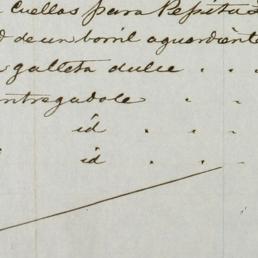 Cuellos para Pepita
de un barril aguardiente
galleta dulce . .
entregadole . .
id . . .
id . . .